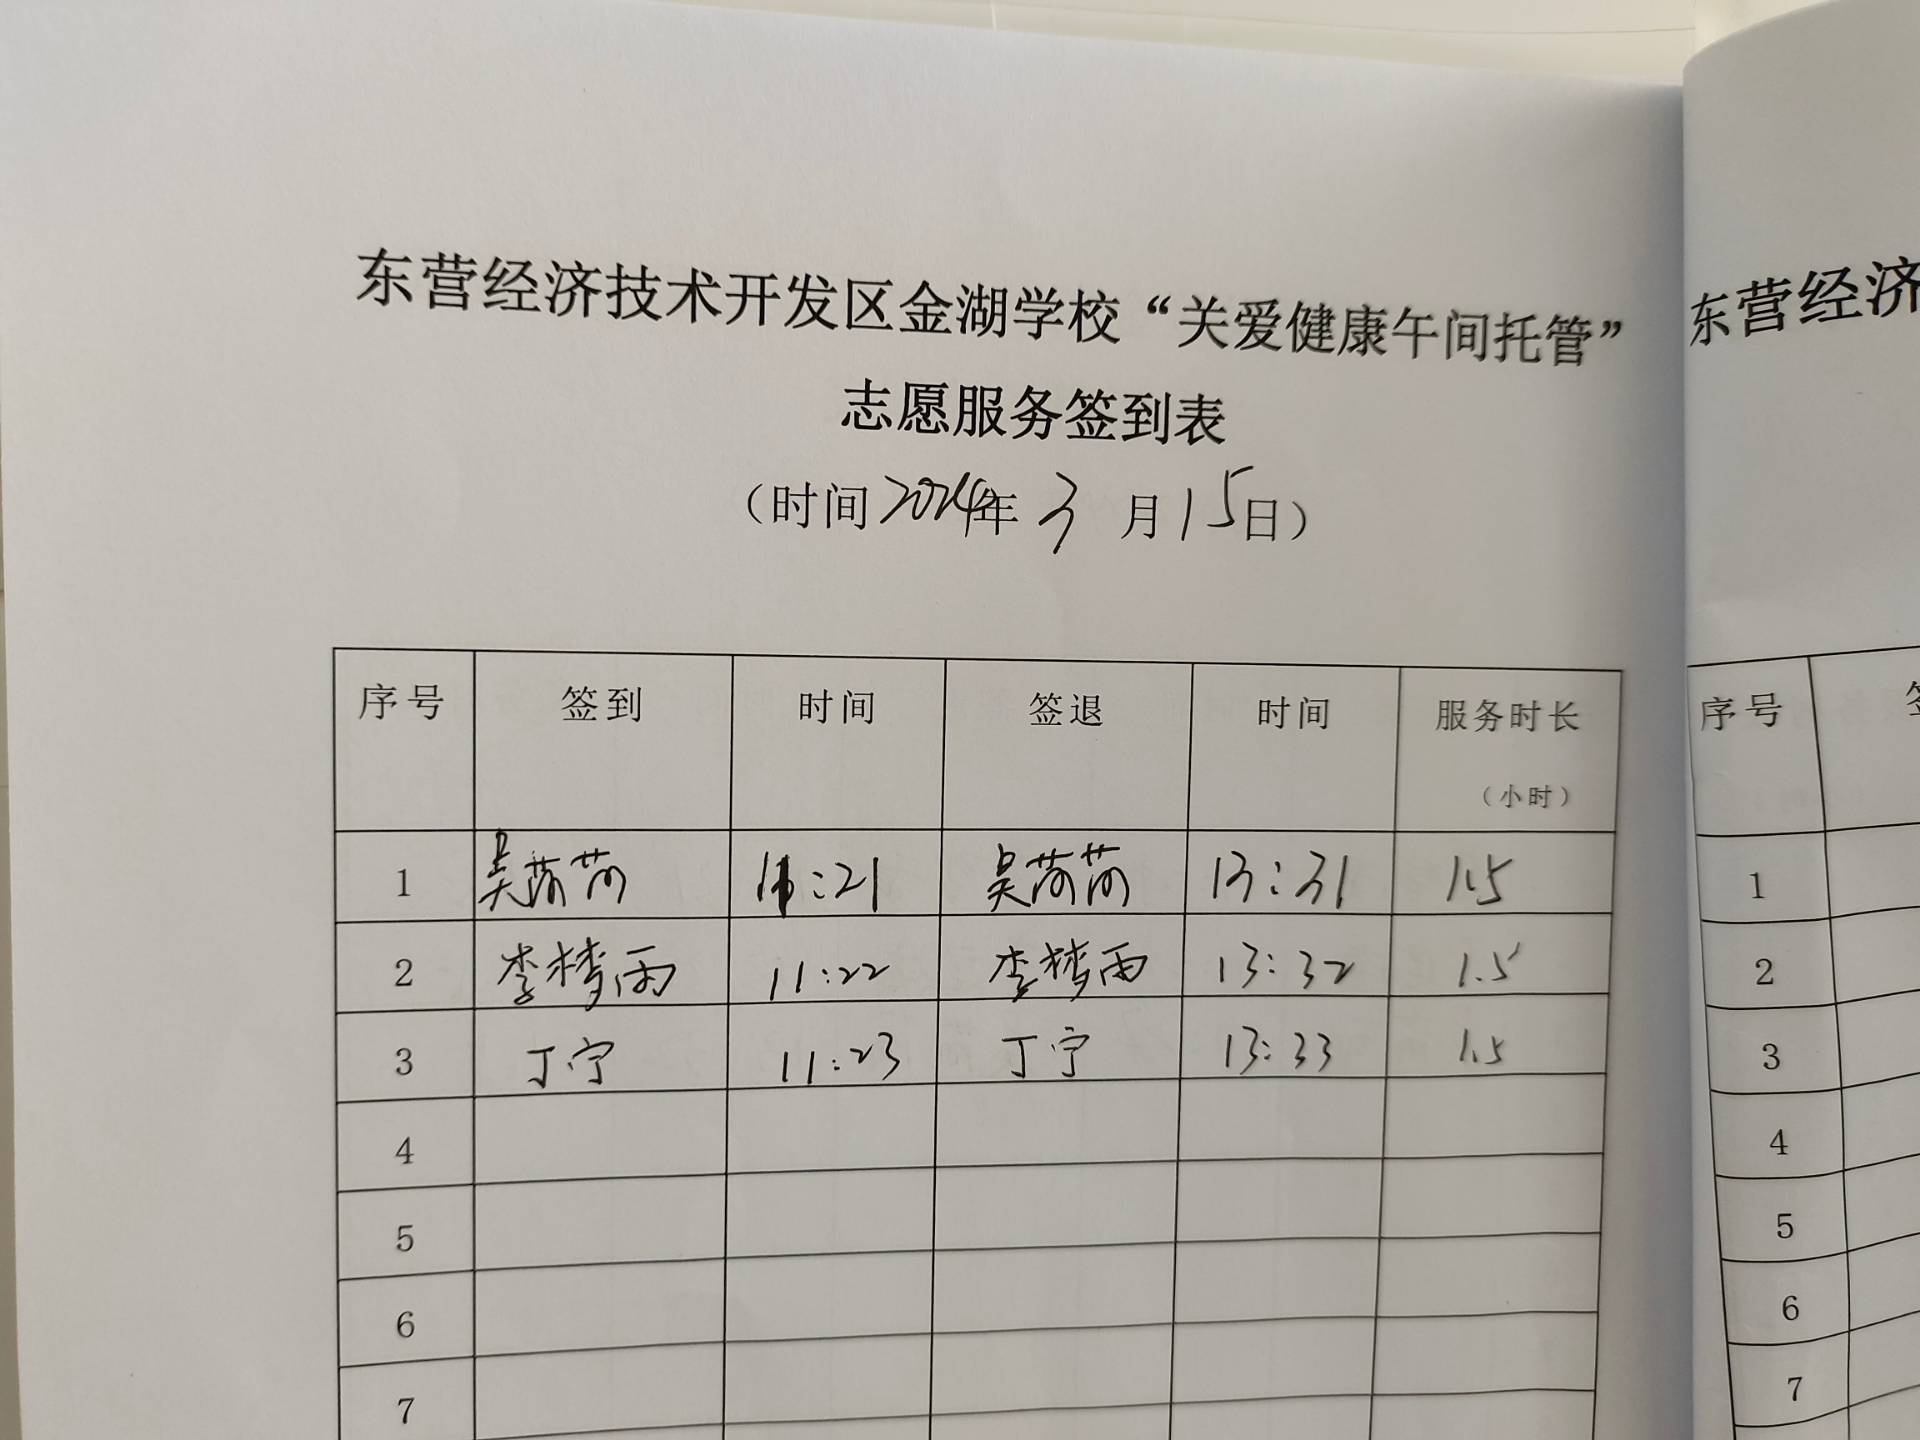 东营经济技术开发区金湖学校“关爱健康午间托管”
志愿服务签到表
（时间2024年3月15日）
序号 签到 时间 签退 时间 服务时长
（小时）
1 吴荷荷 11:21 吴荷荷 13:31 1.5
2 李梦雨 11:22 李梦雨 13:32 1.5
3 丁宁 11:23 丁宁 13:33 1.5
4
5
6
7
东营经济
序号
1
2
3
4
5
6
7